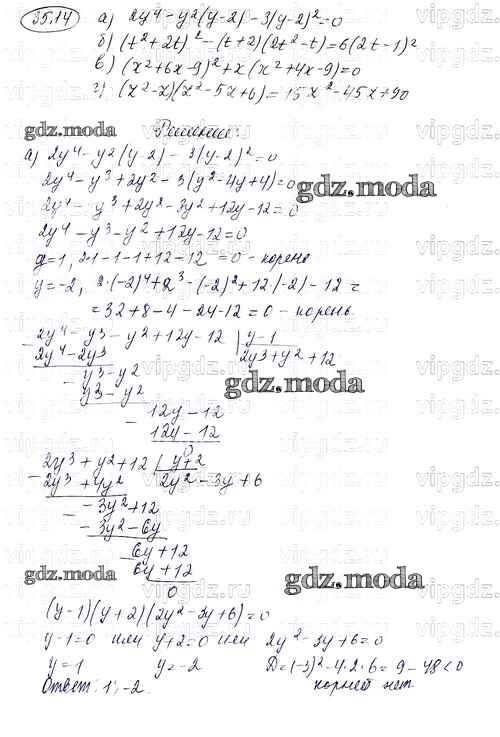 35.14 а) 2y⁴ - y²(y-2) - 3(y-2)² = 0
б) (t²+2t)² - (t+2)(2t²-t) = 6(2t-1)²
в) (x²+6x-9)² + x(x²+4x-9) = 0
г) (x²-x)(x²-5x+6) = 15x²-45x+90
gdz.moda Решение:
а) 2y⁴ - y²(y-2) - 3(y-2)² = 0
2y⁴ - y³ + 2y² - 3(y²-4y+4) = 0
gdz.moda
2y⁴ - y³ + 2y² - 3y² + 12y - 12 = 0
2y⁴ - y³ - y² + 12y - 12 = 0
y=1, 2·1-1-1+12-12 = 0 - корень
y=-2, 2·(-2)⁴+2³-(-2)²+12(-2)-12 =
= 32+8-4-24-12 = 0 - корень.
- 2y⁴ - y³ - y² + 12y - 12 | y-1
2y⁴ - 2y³ 2y³+y²+12
- y³ - y²
y³ - y²
gdz.moda
- 12y - 12
12y - 12
0
- 2y³ + y² + 12 | y+2
2y³ + 4y² 2y² - 3y + 6
- -3y² + 12
- 3y² - 6y
- 6y + 12
gdz.moda 6y + 12
gdz.moda
0
(y-1)(y+2)(2y²-3y+6) = 0
y-1=0 или y+2=0 или 2y²-3y+6=0
y=1 y=-2 D=(-3)²-4·2·6=9-48<0
Ответ: 1; -2. корней нет.